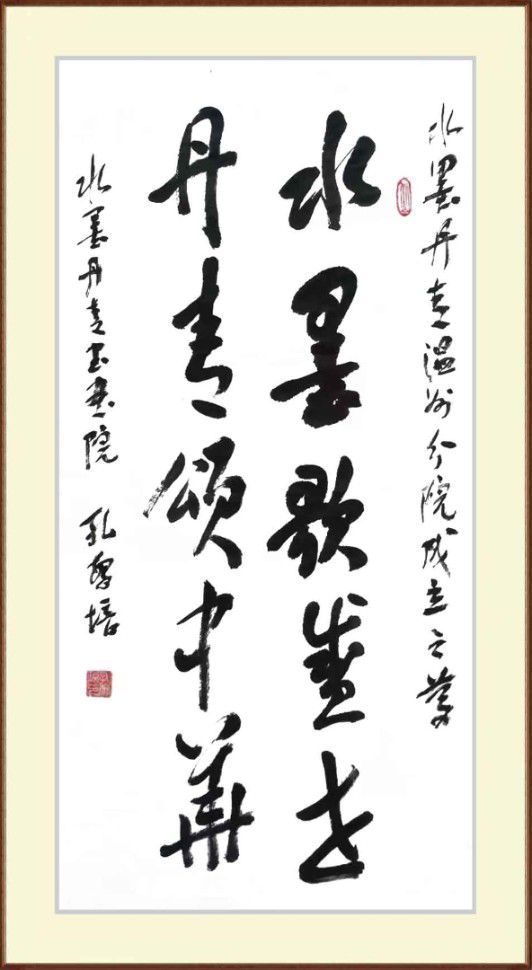 水墨丹青温州分院成立之
水墨歌盛世
丹青颂中华
水墨丹青书画院 孔